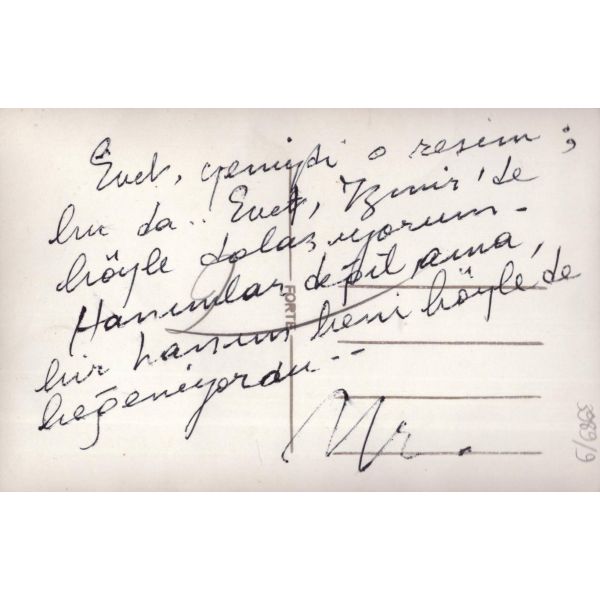 Evet, yenişti o resim;
bu da.. Evet, İzmir'de
böyle dolaşıyorum -
Hanımlar değil, ama,
bir hanım beni böyle de
beğeniyordu --
FORTE